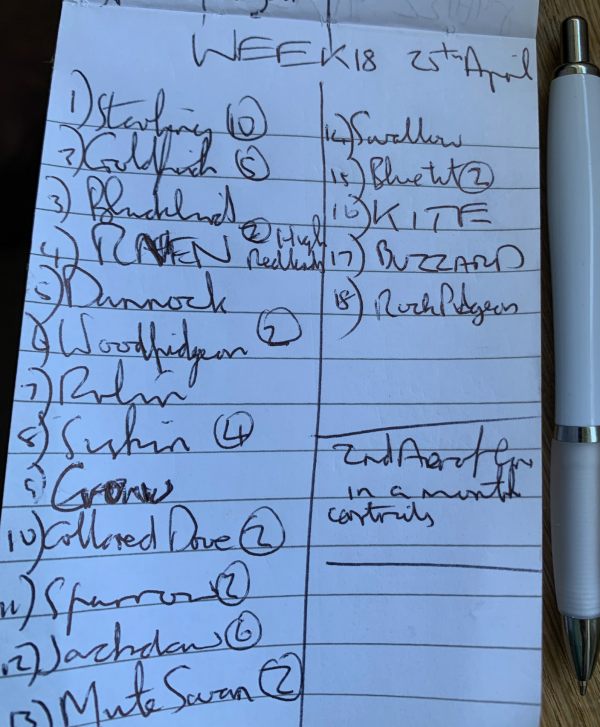 WEEK 18 25th April
1) Starling (10)
2) Goldfinch (5)
3) Blackbird
4) RAVEN (2) High
5) Dunnock
6) Woodpidgeon (2)
7) Robin
8) Siskin (4)
9) Crow
10) Collared Dove (2)
11) Sparrow (2)
12) Jackdaw (6)
13) Mute Swan (2)
14) Swallow
15) Bluetit (2)
16) KITE
17) BUZZARD
18) Rock Pidgeon
2nd
in a month
contrails